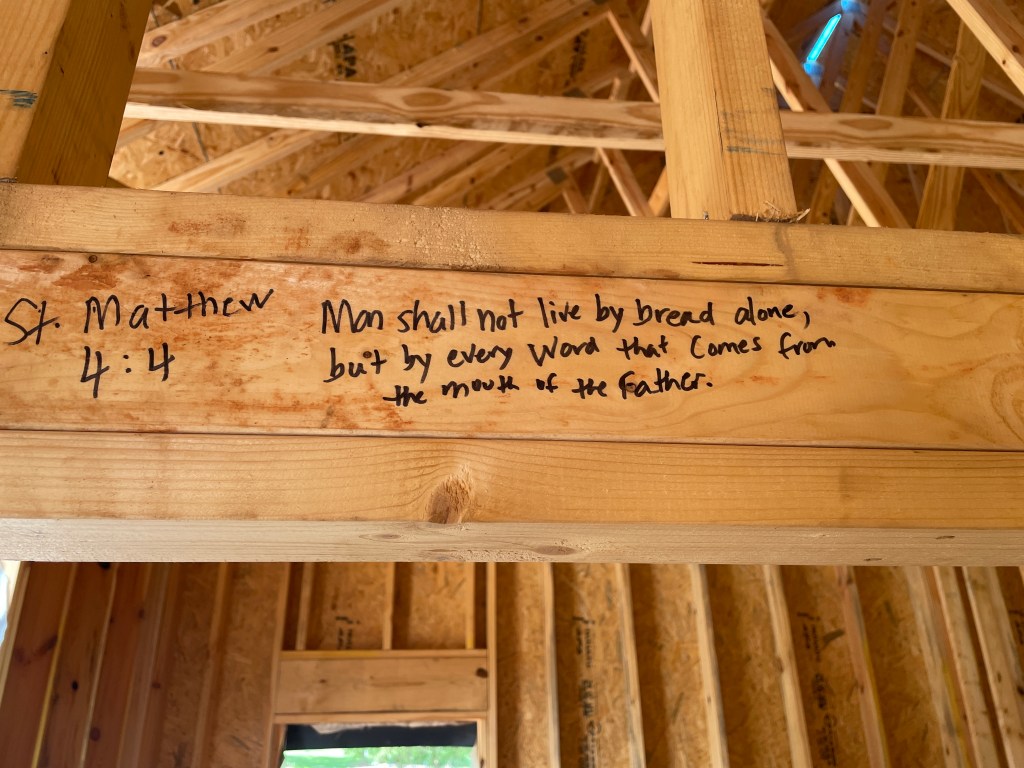 St. Matthew
4:4
Man shall not live by bread alone,
but by every Word that Comes from
the mouth of the Father.